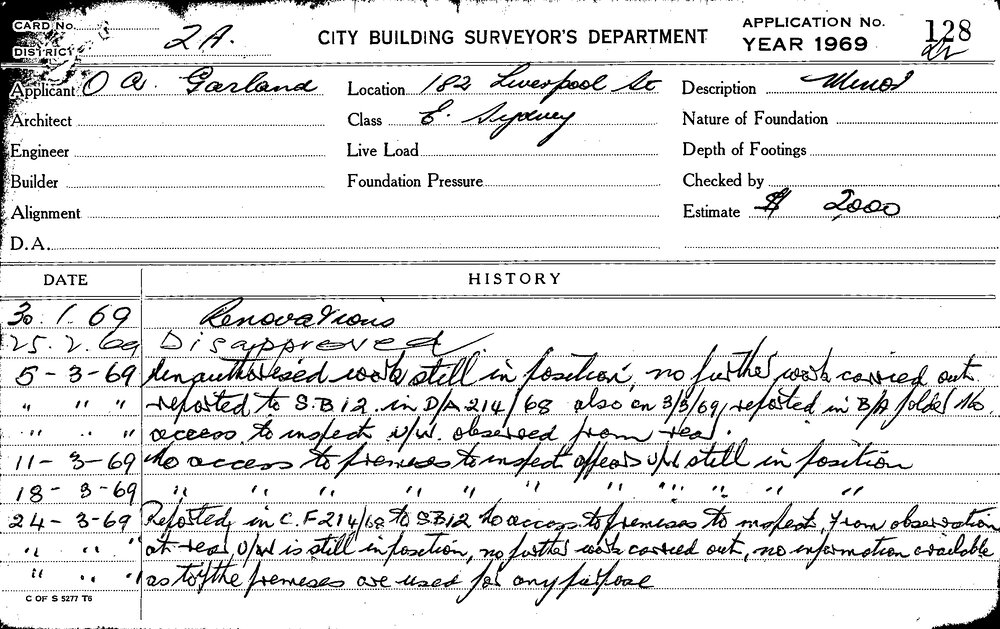 CARD No.
DISTRICT 2A.
CITY BUILDING SURVEYOR'S DEPARTMENT
APPLICATION No. 128
YEAR 1969
Applicant O A. Garland
Location 182 Liverpool St
Description Minor
Architect
Class E. Sydney
Nature of Foundation
Engineer
Live Load
Depth of Footings
Builder
Foundation Pressure
Checked by
Alignment
Estimate $ 2000
D.A.
DATE HISTORY
30. 1. 69 Renovations
25. 2. 69 Disapproved
5-3-69 Unauthorised work still in position, no further work carried out
" " " reported to S.B12. in D/A 214/68 also on 3/3/69, reported in B/A folder No
" " " access to inspect U/W. observed from rear.
11-3-69 No access to premises to inspect appears U/W still in position
18-3-69 " " " " " " " " " " "
24-3-69 Reported in C.F 214/68 to SB12 No access to premises to inspect, from observation
" " " at rear, U/W is still in position, no further work carried out, no information available
" " " as to if the premeses are used for any purpose
C OF S 5277 T6